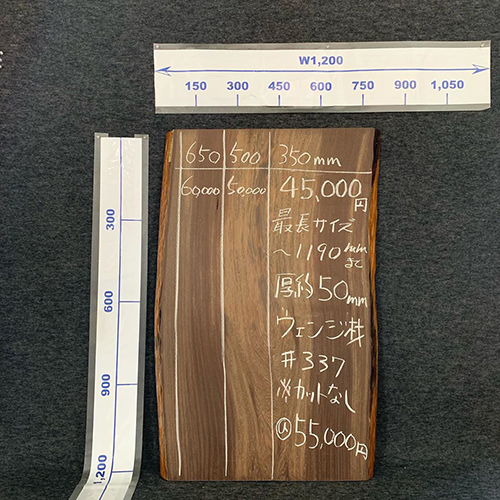 W1,200
150 300 450 600 750 900 1,050
300
600
900
1,200
650 500 350mm
60,000 50,000 45,000円
最長サイズ
～1190mmまで
厚約50mm
ウェンジ材
#337
※カットなし
55,000円